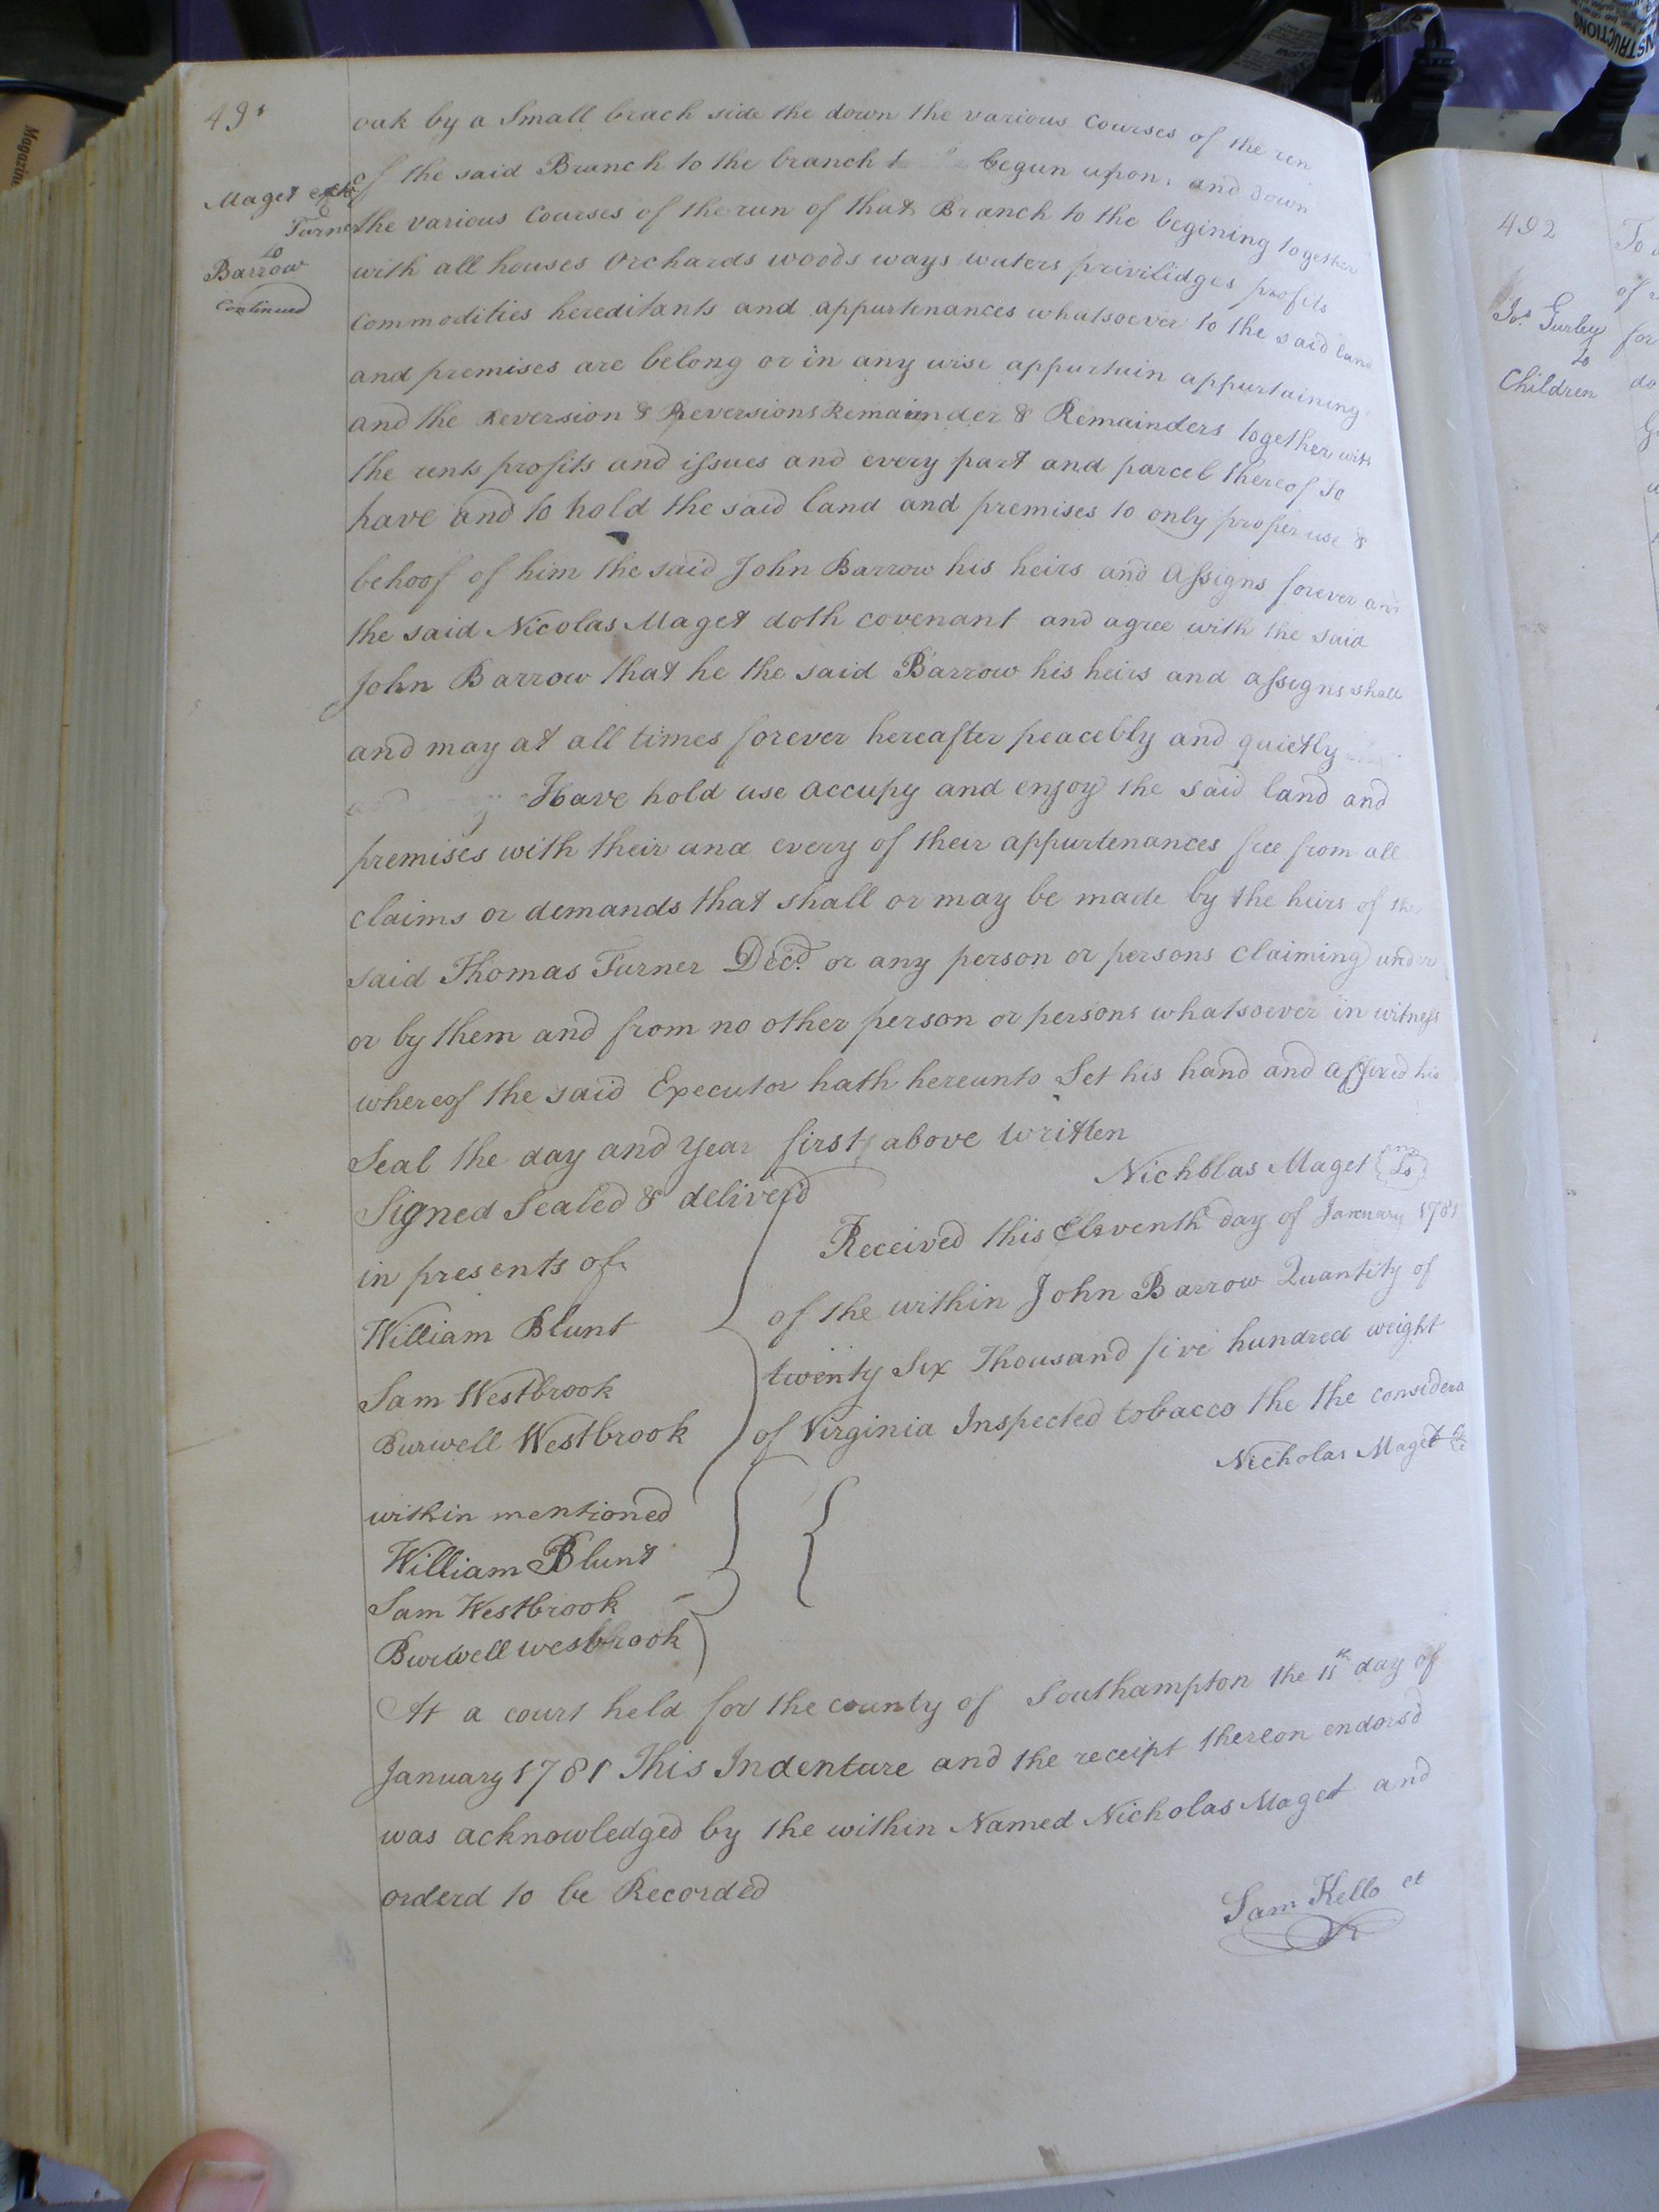 491
Maget exr
Turner
to
Barrow
Continued
oak by a Small brach side the down the various Courses of the run
of the said Branch to the branch begun upon, and down
the various Courses of the run of that Branch to the begining together
with all houses Orchards woods ways waters privilidges profits
Commodities hereditants and appurtenances whatsoever to the said land
and premises are belong or in any wise appurtain appurtaining
and the Reversion & Reversions Remainder & Remainders together with
the rents profits and issues and every part and parcel thereof To
have and to hold the said land and premises to only proper use &
behoof of him the said John Barrow his heirs and Assigns forever and
the said Nicolas Maget doth covenant and agree with the said
John Barrow that he the said Barrow his heirs and assigns shall
and may at all times forever hereafter peacebly and quietly
Have hold use accupy and enjoy the said land and
premises with their and every of their appurtenances free from all
claims or demands that shall or may be made by the heirs of the
said Thomas Turner Decd. or any person or persons Claiming under
or by them and from no other person or persons whatsoever in witness
whereof the said Executor hath hereunto Set his hand and affixed his
Seal the day and year first above written
Nichblas Maget Ls
Signed Sealed & deliverd
in presents of
William Blunt
Sam Westbrook
Burwell Westbrook
Received this Eleventh day of January 1781
of the within John Barrow Quantity of
twenty Six Thousand five hundred weight
of Virginia Inspected tobacco the the considera
Nicholas Maget
within mentioned
William Blunt
Sam Westbrook
Burwell wesbrook
At a court held for the county of Southampton the 11th day of
January 1781 This Indenture and the receipt thereon endorsd
was acknowledged by the within Named Nicholas Maget and
orderd to be Recorded
Sam Kello ct
492
Jos. Gurley
to
Children
To
of
for
do
INSTRUCTIONS
Magazine